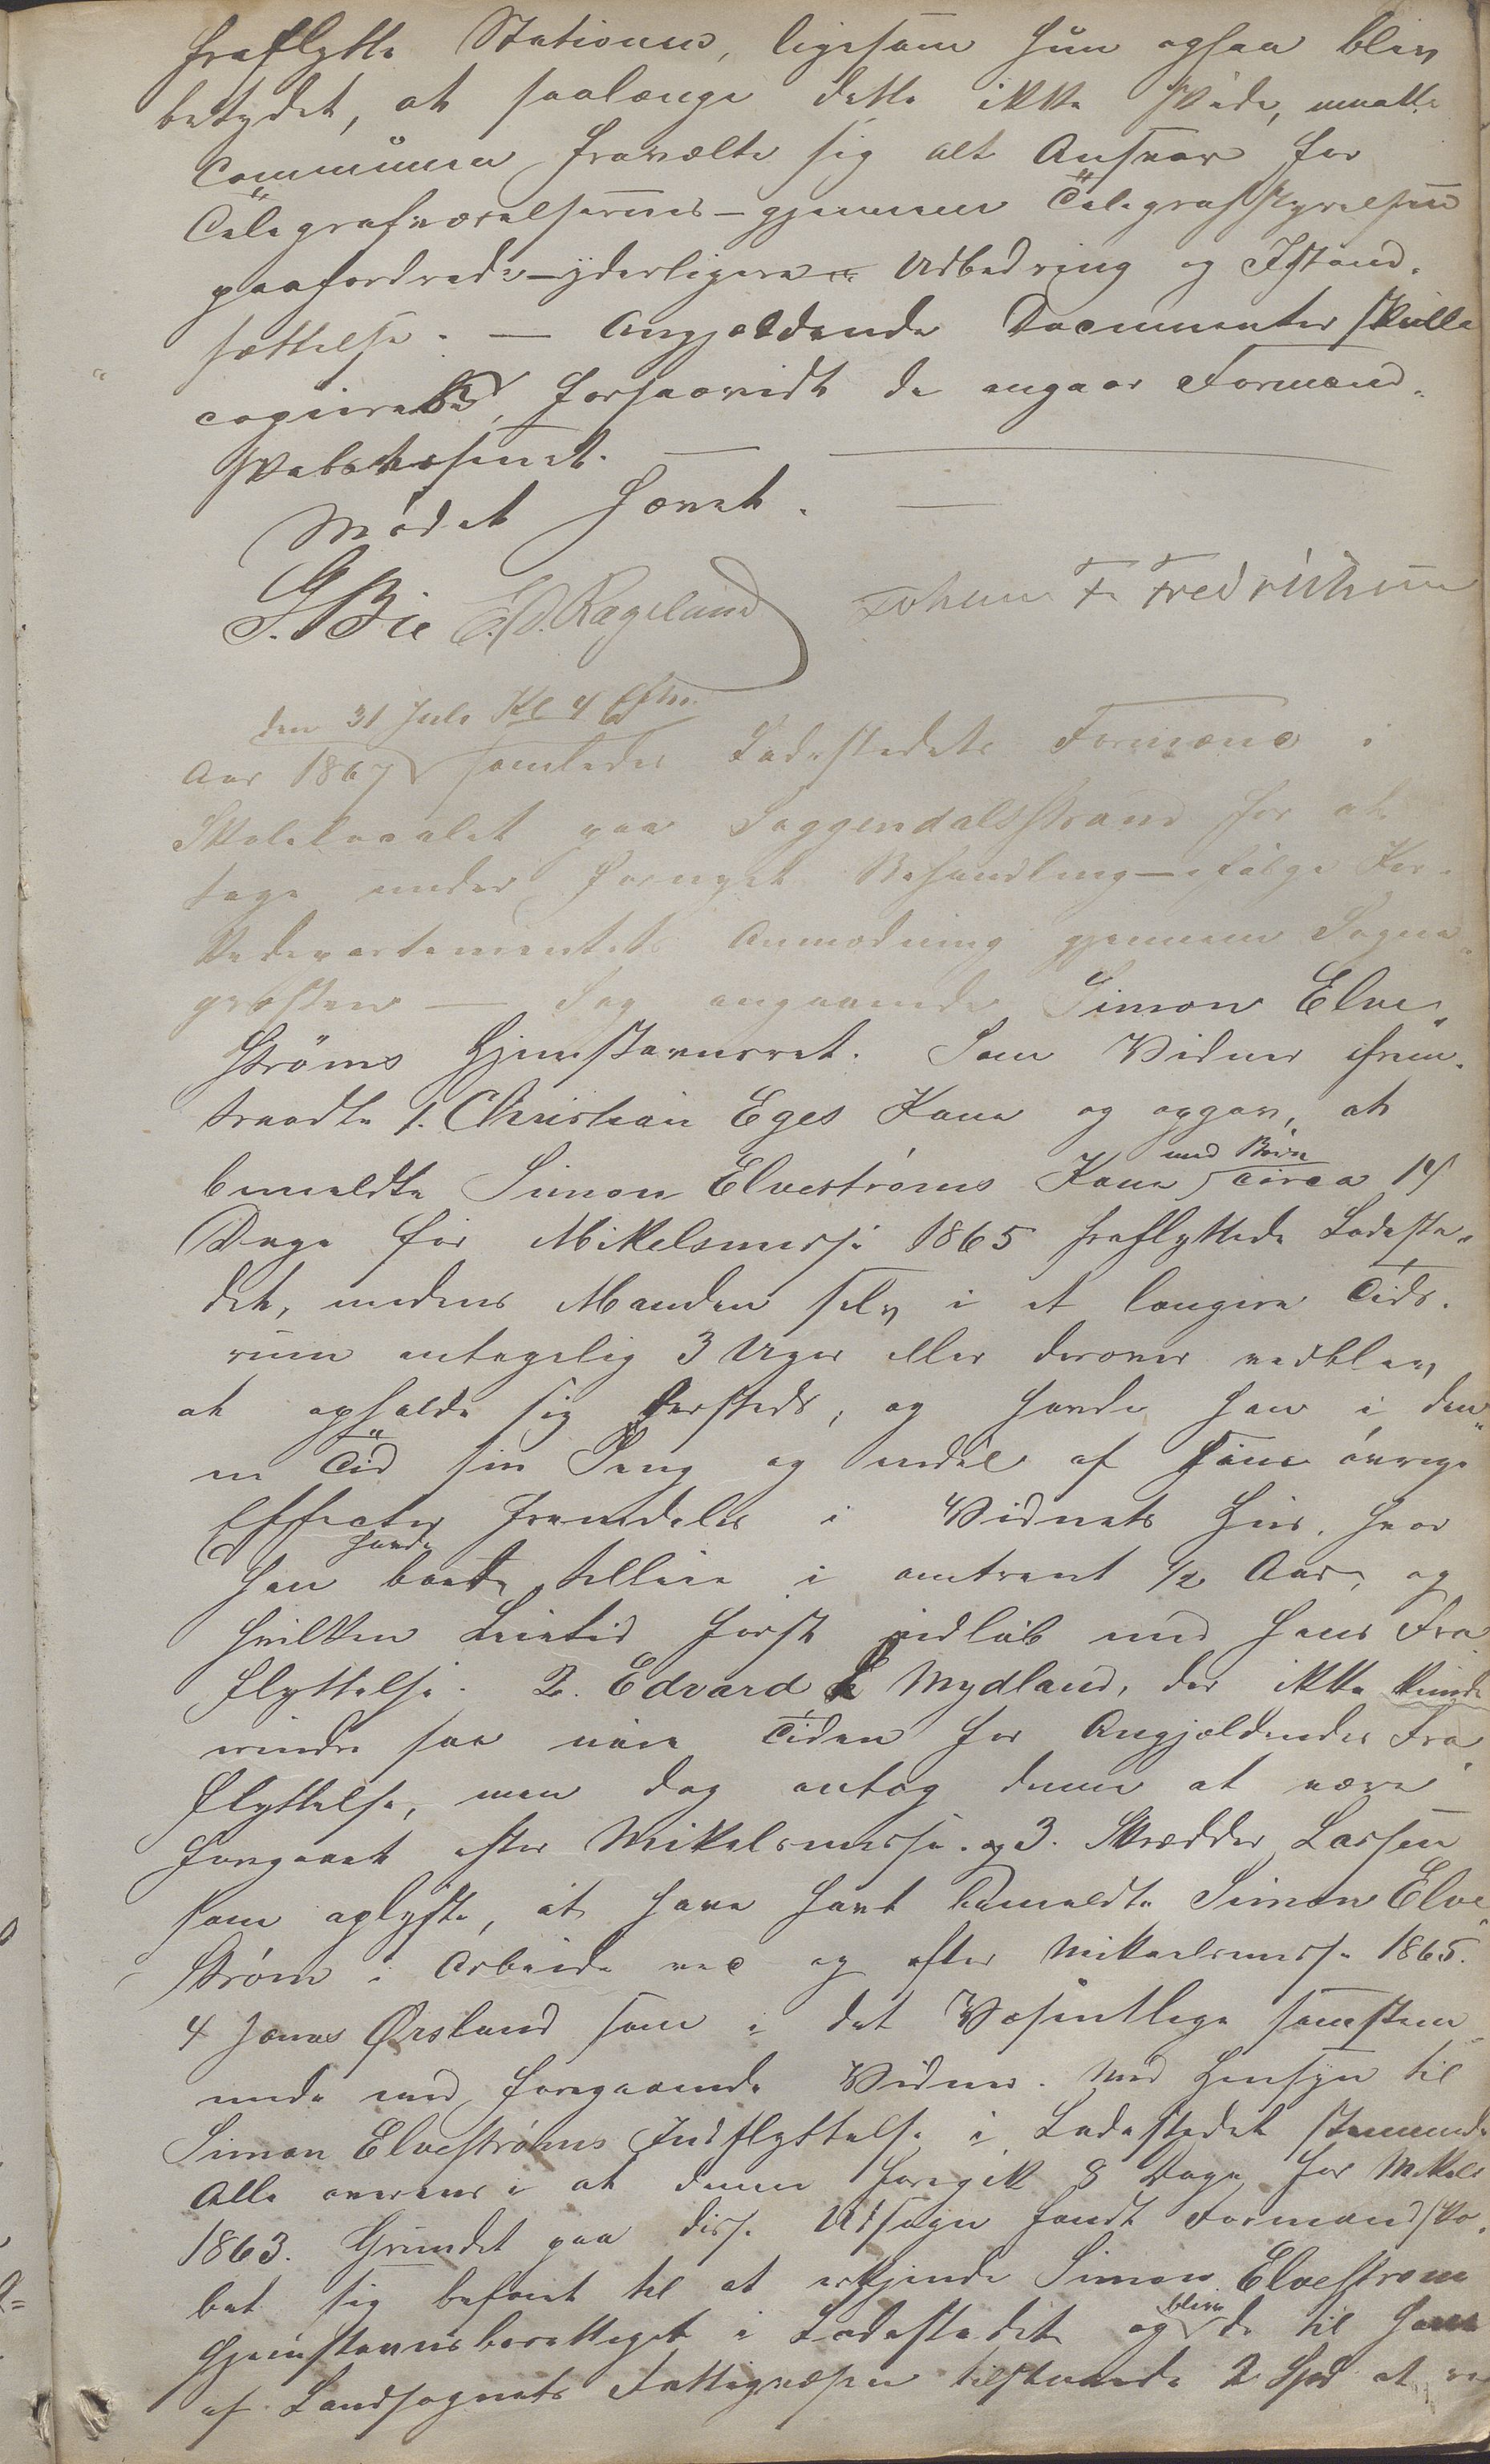 fraflytte Stationen, ligesom hun ogsaa blev
betydet, at saalænge dette ikke skede, maatte
Communen fravælte sig alt Ansvar for
Telegrafværelsernes – gjennem Telegrafstyrelsen
paafordrede – yderligere Udbedring og Istand-
sættelse. — Angjeldende Documenter skulle
copieres, forsaavidt de angaar Formand-
skabsvæsenet. —
Mødet hævet. —
S. Bie E. O. Rageland Johan F. Fredriksen
den 31 Juli Kl 4 Eftm.
Aar 1867 samledes Ladestedets Formænd i
Skolelocalet paa Soggendalsstrand for at
tage under fornyet Behandling – ifølge Kir-
kedepartementets Anmodning gjennem Sogne-
præsten — Sag angaaende Simon Elve-
strøms Hjemstavnsret. Som Vidner frem-
traadte 1. Christian Eges Kone og opgav, at
bemeldte Simon Elvestrøms Kone med Børn circa 14
Dage før Mikelsmesse 1865 fraflyttede Ladeste-
det, medens Manden selv i et længere Tids-
rum antagelig 3 Uger eller derover vedblev
at opholde sig dersteds, og havde han i den-
ne Tid sin Seng og endel af sine øvrige
Effecter fremdeles i Vidnets Huus, hvor
han havde boet tilleie i omtrent 1/2 Aar, og
hvilken Leietid først udløb med hans Fra-
flyttelse. 2. Edvard Mydland, der ikke kunde
erindre saa nøie Tiden for Angjældendes Fra-
flyttelse, men dog antog denne at være
foregaaet efter Mikelsmesse. og 3. Skrædder Larsen
som oplyste, at have havt bemeldte Simon Elve-
strøm i Arbeide ved og efter Mikaelsmesse 1865.
4 Jonas Ørsland som i det Væsentlige samstem-
mede med foregaaende Vidner. Med Hensyn til
Simon Elvestrøms Indflyttelse i Ladestedet stemmede
Alle overens i at denne foregik 8 Dage før Mikels
1863. Grundet paa disse Udsagn fandt Formandska-
bet sig beføiet til at erkjende Simon Elvestrøm
Hjemstavnsberettiget i Ladestedet og blive de til ham
af Landsognets Fattigvæsen tilstaaede 2 Spd at